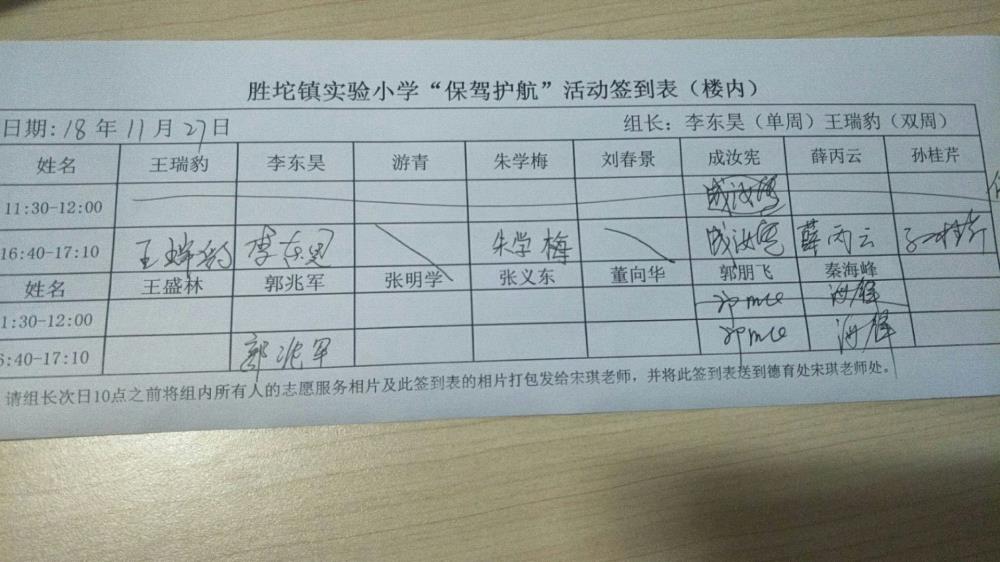 胜坨镇实验小学“保驾护航”活动签到表（楼内）
日期: 18 年 11 月 27 日 组长：李东昊（单周）王瑞豹（双周）
姓名 王瑞豹 李东昊 游青 朱学梅 刘春景 成汝宪 薛丙云 孙桂芹
11:30-12:00 成汝宪
16:40-17:10 王瑞豹 李东昊 朱学梅 成汝宪 薛丙云 孙桂芹
姓名 王盛林 郭兆军 张明学 张义东 董向华 郭朋飞 秦海峰
1:30-12:00 海峰
6:40-17:10 郭兆军 海峰
请组长次日10点之前将组内所有人的志愿服务相片及此签到表的相片打包发给宋琪老师，并将此签到表送到德育处宋琪老师处。